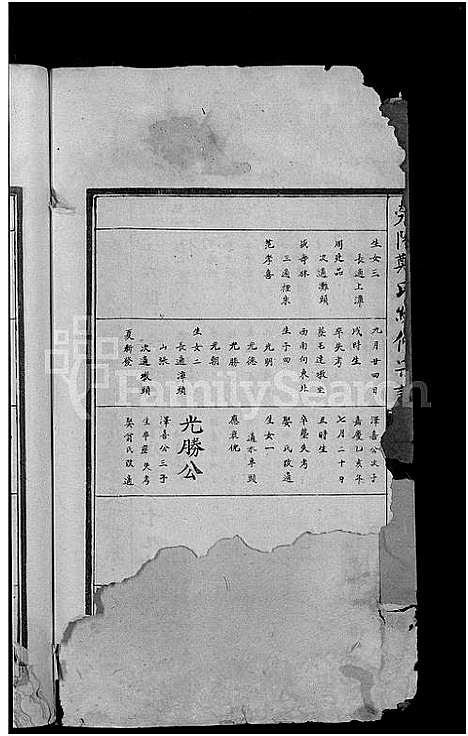 滎陽鄭氏
生女三
長適上潭
周建品
次適灘頭
三適程東
范孝喜
九月廿四日
戌時生
卒失考
西南向東北
生子四
光明
光德
光勝
光朝
生女二
長適漳頭
山張
次適墩頭
夏新發
澤喜公次子
嘉慶乙亥年
七月二十日
丑時生
卒塟失考
娶 氏改適
生女一
適水阜頭
應良優
光勝公
澤喜公三子
生卒塟失考
娶翁氏改適
FamilySearch